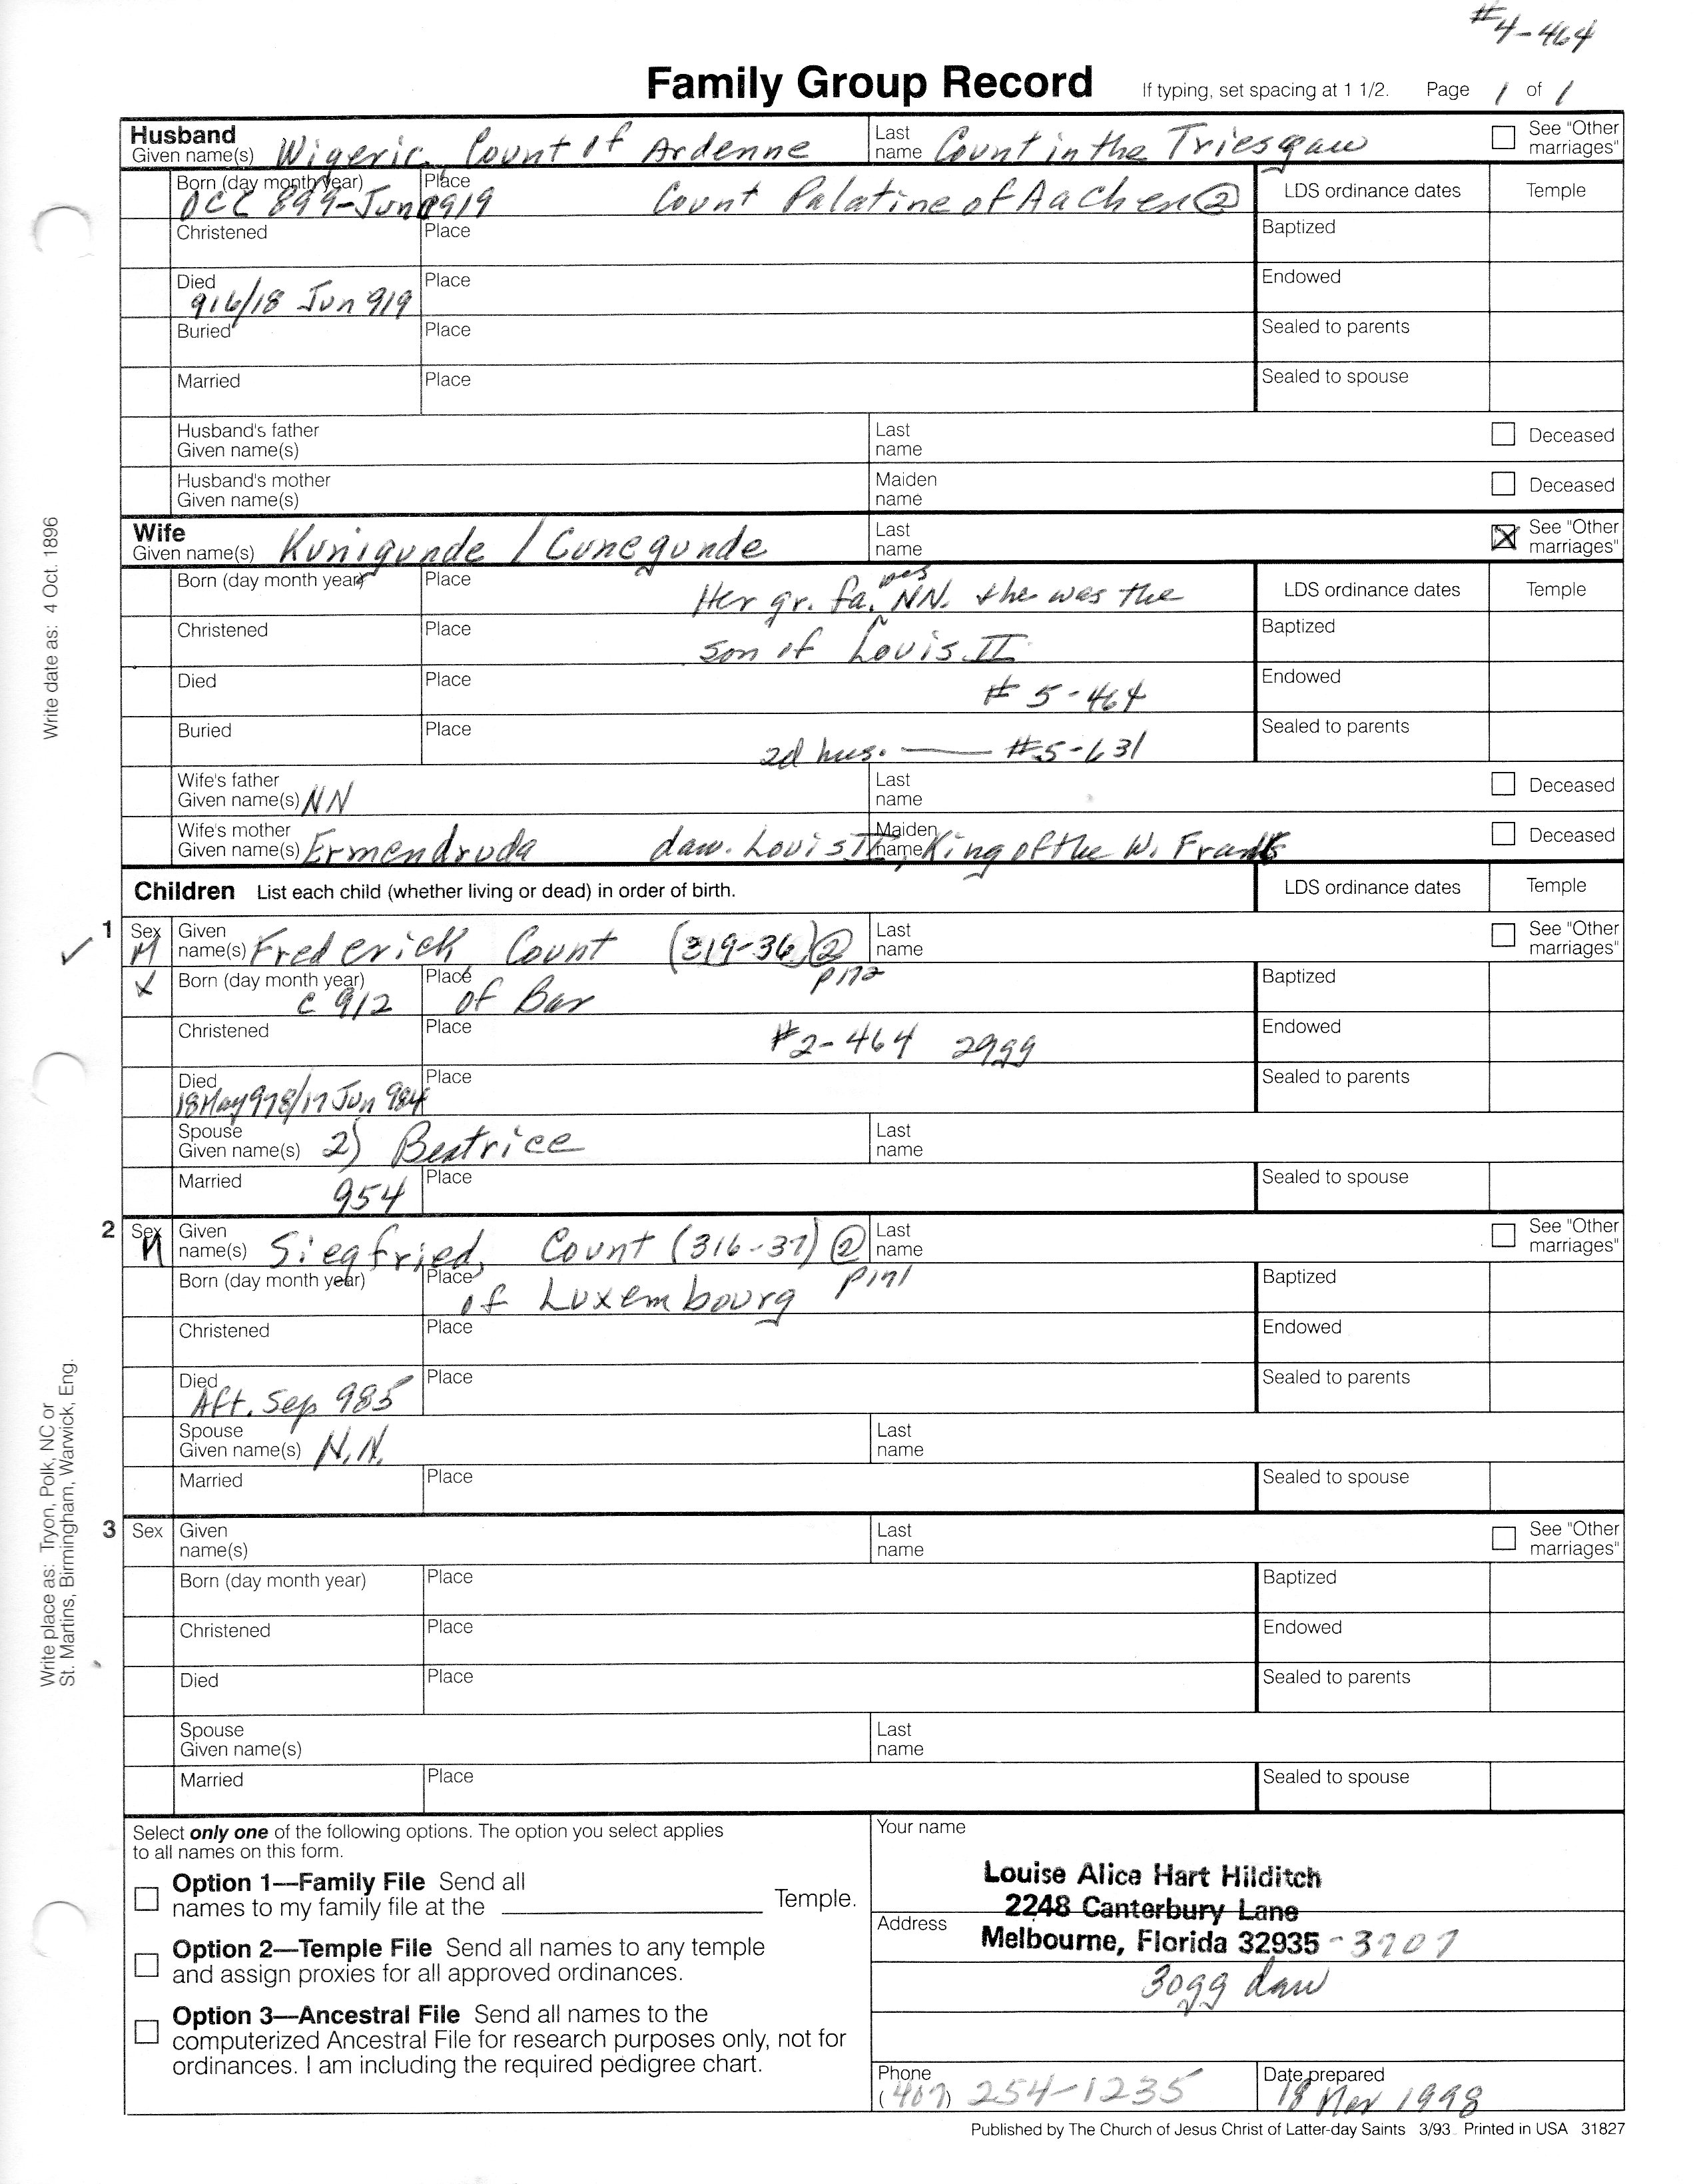 #4-464
Family Group Record If typing, set spacing at 1 1/2. Page 1 of 1
Husband
Given name(s) Wigeric, Count of Ardenne Last name Count in the Triesgaw See "Other marriages"
Born (day month year) OCC 899-Jun 919 Place Count Palatine of Aachen ② LDS ordinance dates Temple
Christened Place Baptized
Died 916/18 Jun 919 Place Endowed
Buried Place Sealed to parents
Married Place Sealed to spouse
Husband's father Given name(s) Last name Deceased
Husband's mother Given name(s) Maiden name Deceased
Wife
Given name(s) Kunigunde / Cunegunde Last name See "Other marriages"
Born (day month year) Place Her gr. fa. was NN. she was the LDS ordinance dates Temple
Christened Place son of Louis II Baptized
Died Place # 5-464 Endowed
Buried Place 2d hus. — #5-631 Sealed to parents
Wife's father Given name(s) NN Last name Deceased
Wife's mother Given name(s) Ermendruda daw. Louis II, Maiden name King of the W. Franks Deceased
Children List each child (whether living or dead) in order of birth. LDS ordinance dates Temple
1 Sex M Given name(s) Frederick, Count (319-36) ② p172 Last name See "Other marriages"
Born (day month year) c 912 Place of Bar Baptized
Christened Place #2-464 29gg Endowed
Died 18 May 978/17 Jun 984 Place Sealed to parents
Spouse Given name(s) 2) Beatrice Last name
Married 954 Place Sealed to spouse
2 Sex M Given name(s) Siegfried, Count (316-37) ② p171 Last name See "Other marriages"
Born (day month year) Place of Luxembourg Baptized
Christened Place Endowed
Died Aft. Sep 985 Place Sealed to parents
Spouse Given name(s) N.N. Last name
Married Place Sealed to spouse
3 Sex Given name(s) Last name See "Other marriages"
Born (day month year) Place Baptized
Christened Place Endowed
Died Place Sealed to parents
Spouse Given name(s) Last name
Married Place Sealed to spouse
Write date as: 4 Oct. 1896
Write place as: Tryon, Polk, NC or
St. Martins, Birmingham, Warwick, Eng.
Select only one of the following options. The option you select applies
to all names on this form.
Option 1—Family File Send all
names to my family file at the Temple.
Option 2—Temple File Send all names to any temple
and assign proxies for all approved ordinances.
Option 3—Ancestral File Send all names to the
computerized Ancestral File for research purposes only, not for
ordinances. I am including the required pedigree chart.
Your name
Louise Alice Hart Hilditch
2248 Canterbury Lane
Address Melbourne, Florida 32935-3707
30gg daw
Phone (407) 254-1235 Date prepared 18 Mar 1998
Published by The Church of Jesus Christ of Latter-day Saints 3/93 Printed in USA 31827